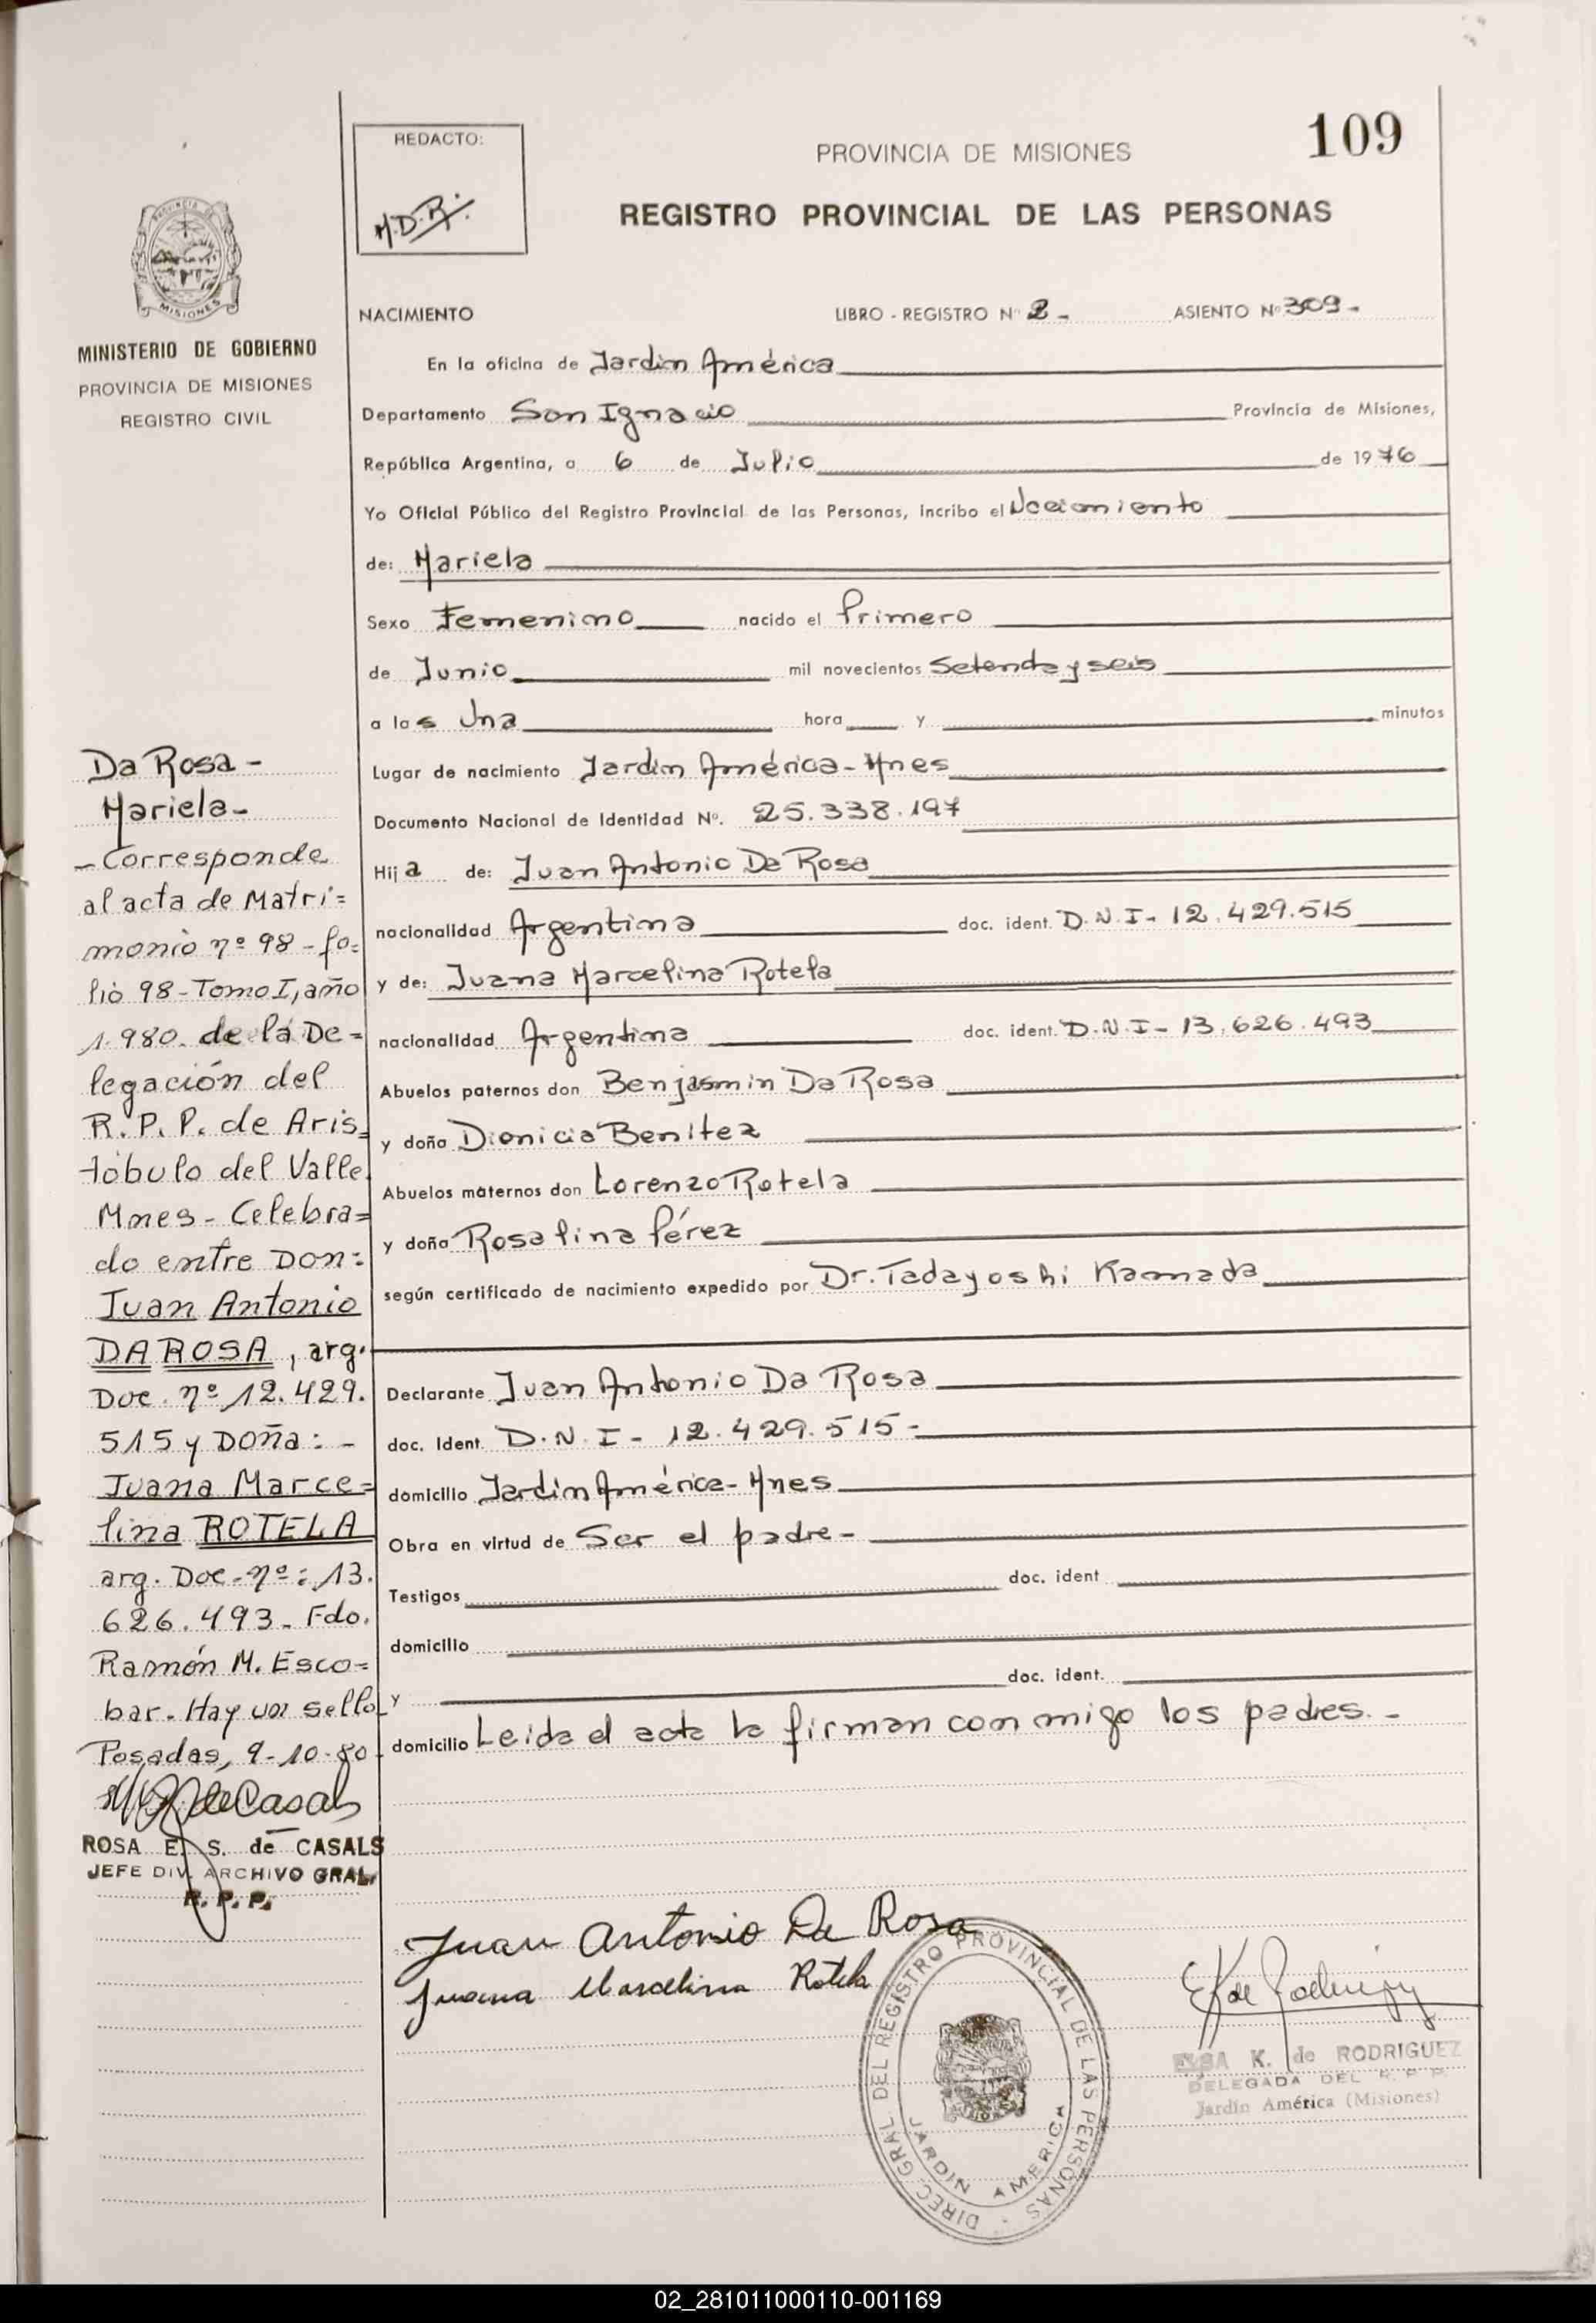 109
REDACTO:
M.D.R.
PROVINCIA DE MISIONES
REGISTRO PROVINCIAL DE LAS PERSONAS
PROVINCIA DE
MISIONES
MINISTERIO DE GOBIERNO
PROVINCIA DE MISIONES
REGISTRO CIVIL
NACIMIENTO LIBRO - REGISTRO Nº 2 - ASIENTO Nº 309 -
En la oficina de Jardin América
Departamento San Ignacio Provincia de Misiones,
República Argentina, a 6 de Julio de 1976
Yo Oficial Público del Registro Provincial de las Personas, incribo el Nacimiento
de: Mariela
Sexo Femenino nacido el Primero
de Junio mil novecientos Setenta y seis
a las Una hora y minutos
Lugar de nacimiento Jardin América - Mnes
Documento Nacional de Identidad Nº. 25.338.197
Hija de: Juan Antonio Da Rosa
nacionalidad Argentina doc. ident. D.N.I - 12.429.515
y de: Juana Marcelina Rotela
nacionalidad Argentina doc. ident. D.N.I - 13.626.493
Abuelos paternos don Benjasmin Da Rosa
y doña Dionicia Benitez
Abuelos maternos don Lorenzo Rotela
y doña Rosalina Pérez
según certificado de nacimiento expedido por Dr. Tadayoshi Kamada
Declarante Juan Antonio Da Rosa
doc. Ident. D.N.I - 12.429.515 -
domicilio Jardin América - Mnes
Obra en virtud de Ser el padre -
Testigos doc. ident
domicilio
y doc. ident.
domicilio Leida el acta la firman conmigo los padres. -
Da Rosa -
Mariela -
- Corresponde
al acta de Matri=
monio nº 98 - fo=
lio 98 - Tomo I, año
1.980. de la De=
legación del
R.P.P. de Aris=
tóbulo del Valle
Mnes - Celebra=
do entre Don:
Juan Antonio
DA ROSA, arg.
Doc. nº 12.429.
515 y Doña: -
Juana Marce=
lina ROTELA
arg. Doc. nº: 13.
626.493 - Fdo.
Ramón M. Esco=
bar. Hay un sello
Posadas, 9-10-80
ROSA E. S. de CASALS
JEFE DIV. ARCHIVO GRAL.
R. P. P.
Juan Antonio Da Rosa
Juana Marcelina Rotela
DIREC GRAL DEL REGISTRO PROVINCIAL DE LAS PERSONAS
JARDIN AMERICA
E K de Rodriguez
ELSA K. de RODRIGUEZ
DELEGADA DEL R. P. P.
Jardín América (Misiones)
02_281011000110-001169